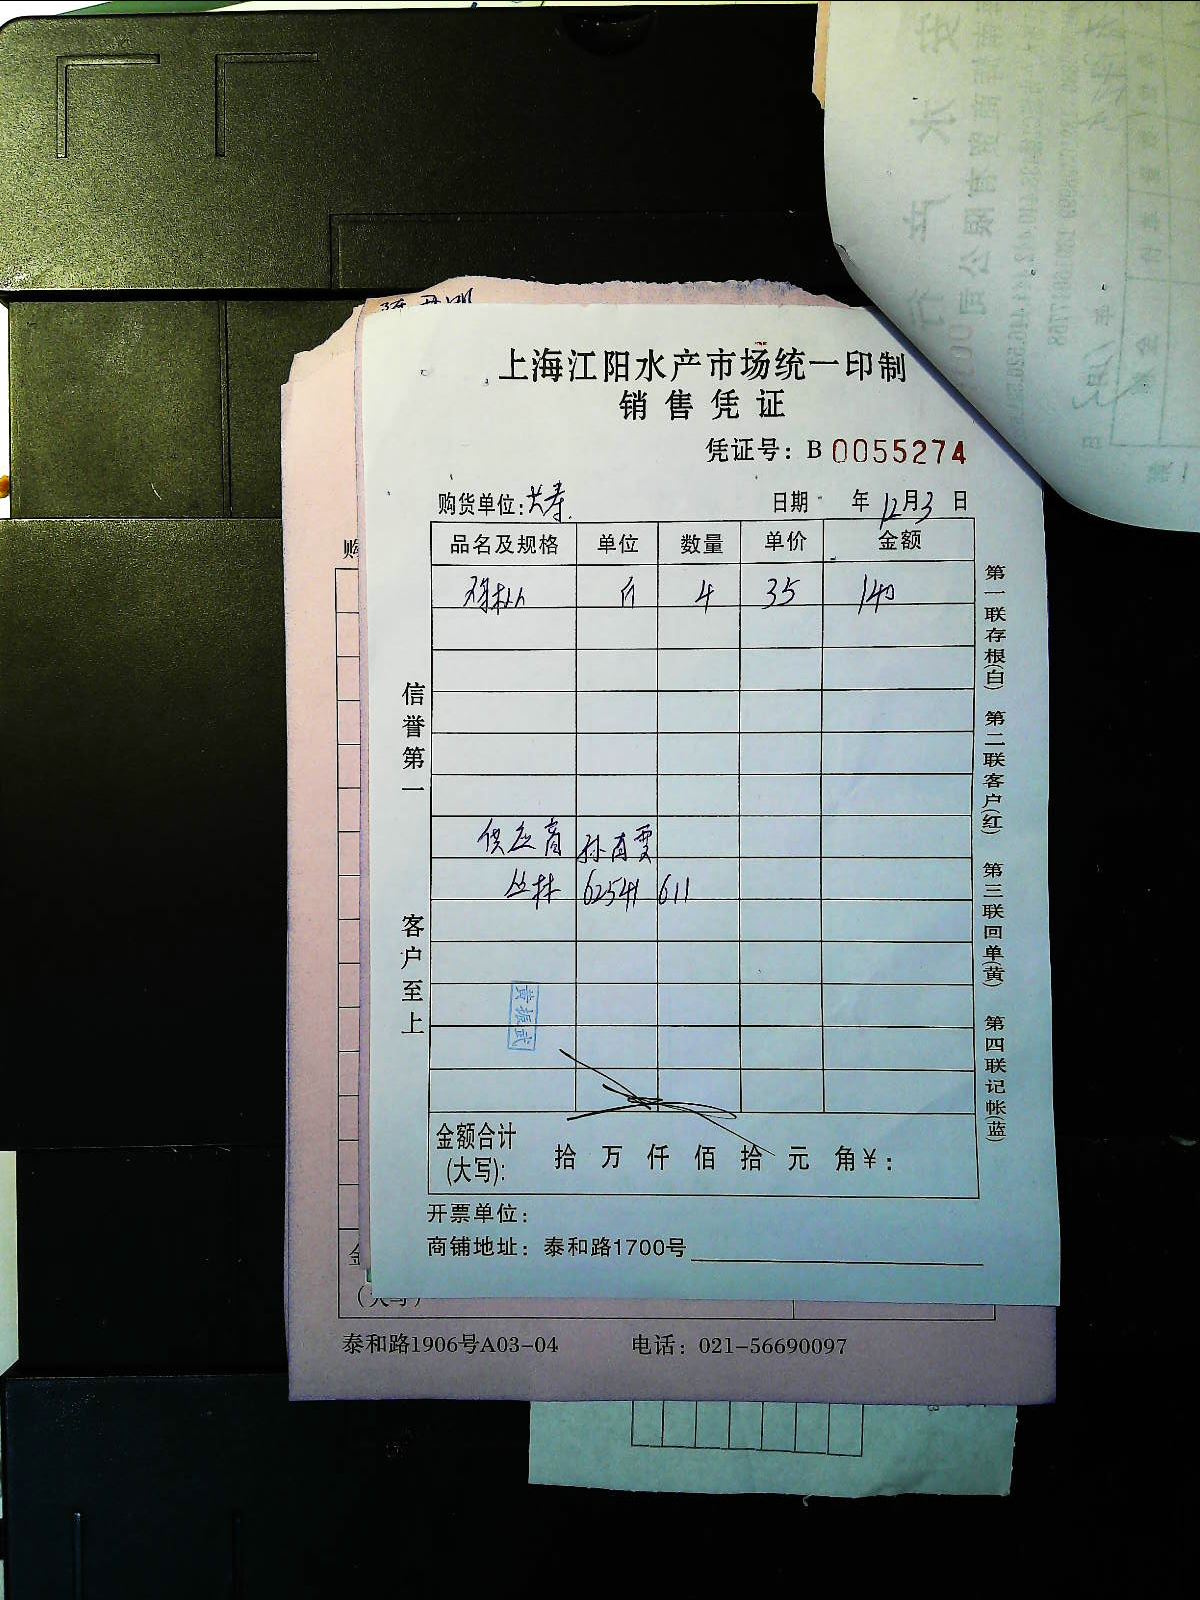 上海江阳水产市场统一印制
销售凭证
凭证号：B 0055274
购货单位： 日期 年 12月3日
品名及规格 单位 数量 单价 金额
斤 4 35 140
供应商 孙育雯
丛林 62541611
黄振武
金额合计(大写): 拾 万 仟 佰 拾 元 角￥：
开票单位：
商铺地址：泰和路1700号
信誉第一
客户至上
第一联存根(白) 第二联客户(红) 第三联回单(黄) 第四联记帐(蓝)
购
金
(大写)
泰和路1906号A03-04 电话：021-56690097